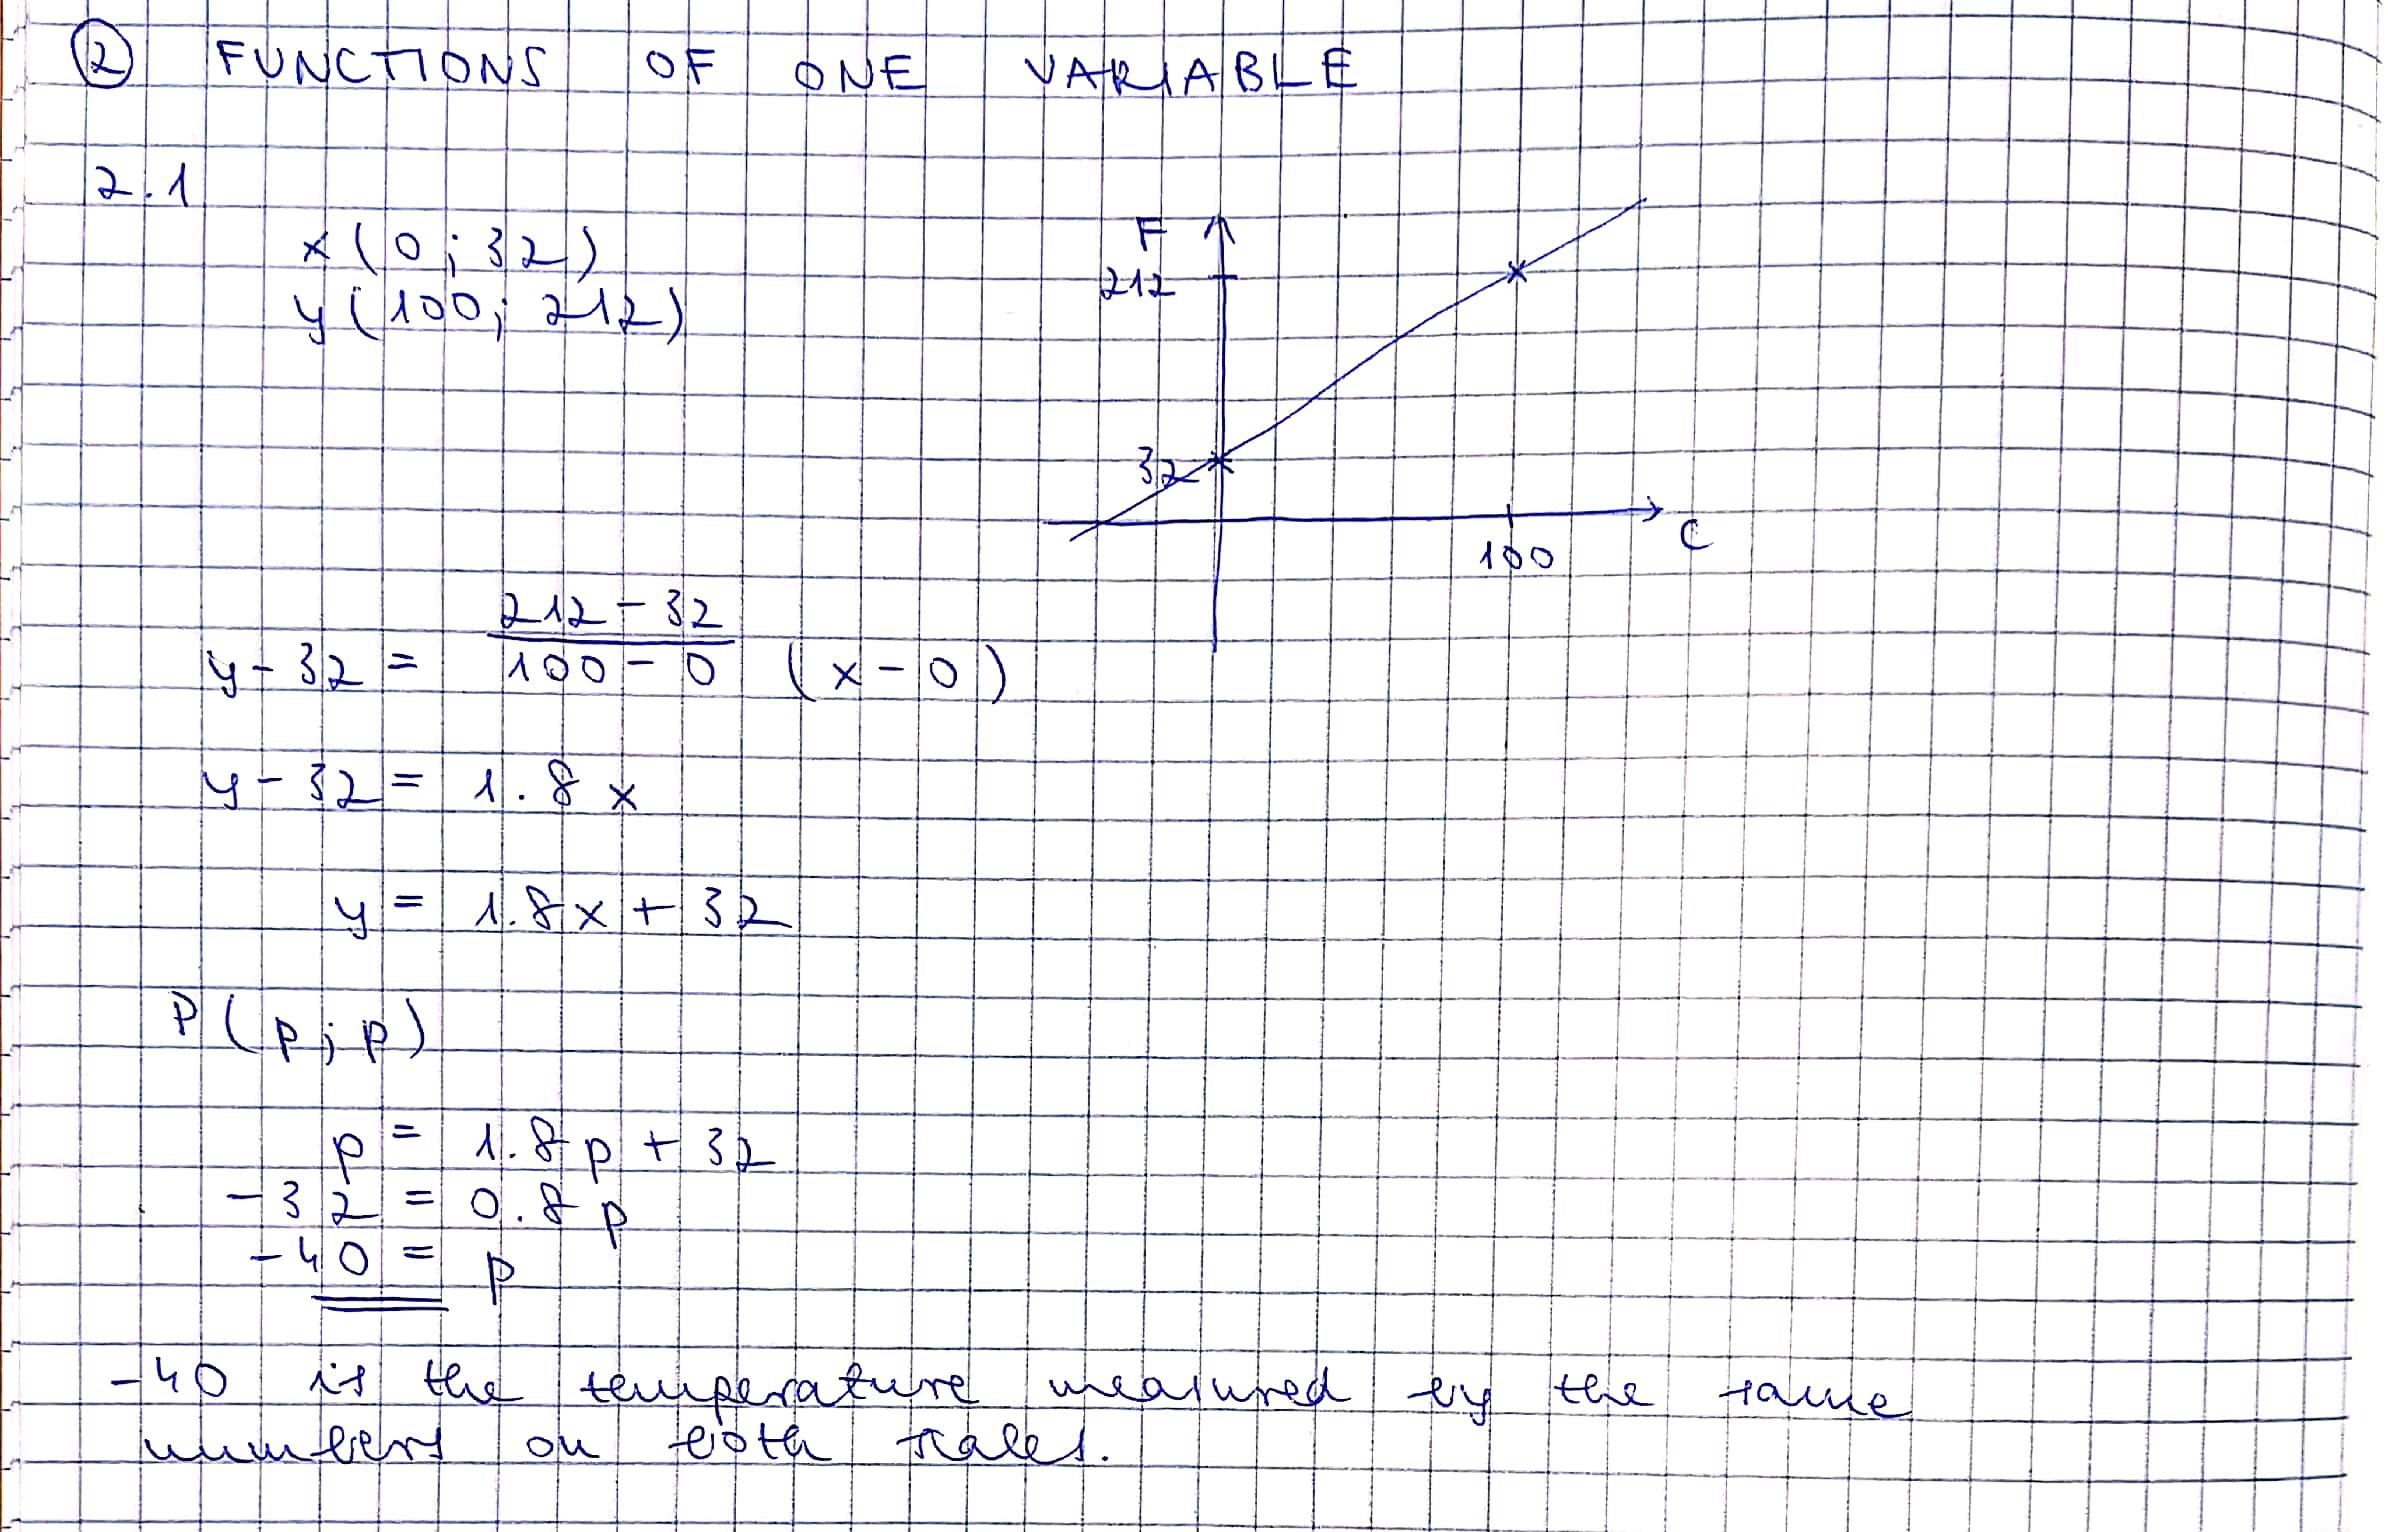 ② FUNCTIONS OF ONE VARIABLE
2.1
x(0; 32)
y(100; 212)
F
212
32
100
C
y - 32 = \frac{212 - 32}{100 - 0} (x - 0)
y - 32 = 1.8x
y = 1.8x + 32
P(p; p)
p = 1.8p + 32
-32 = 0.8p
-40 = p
-40 is the temperature measured by the same
numbers on both scales.